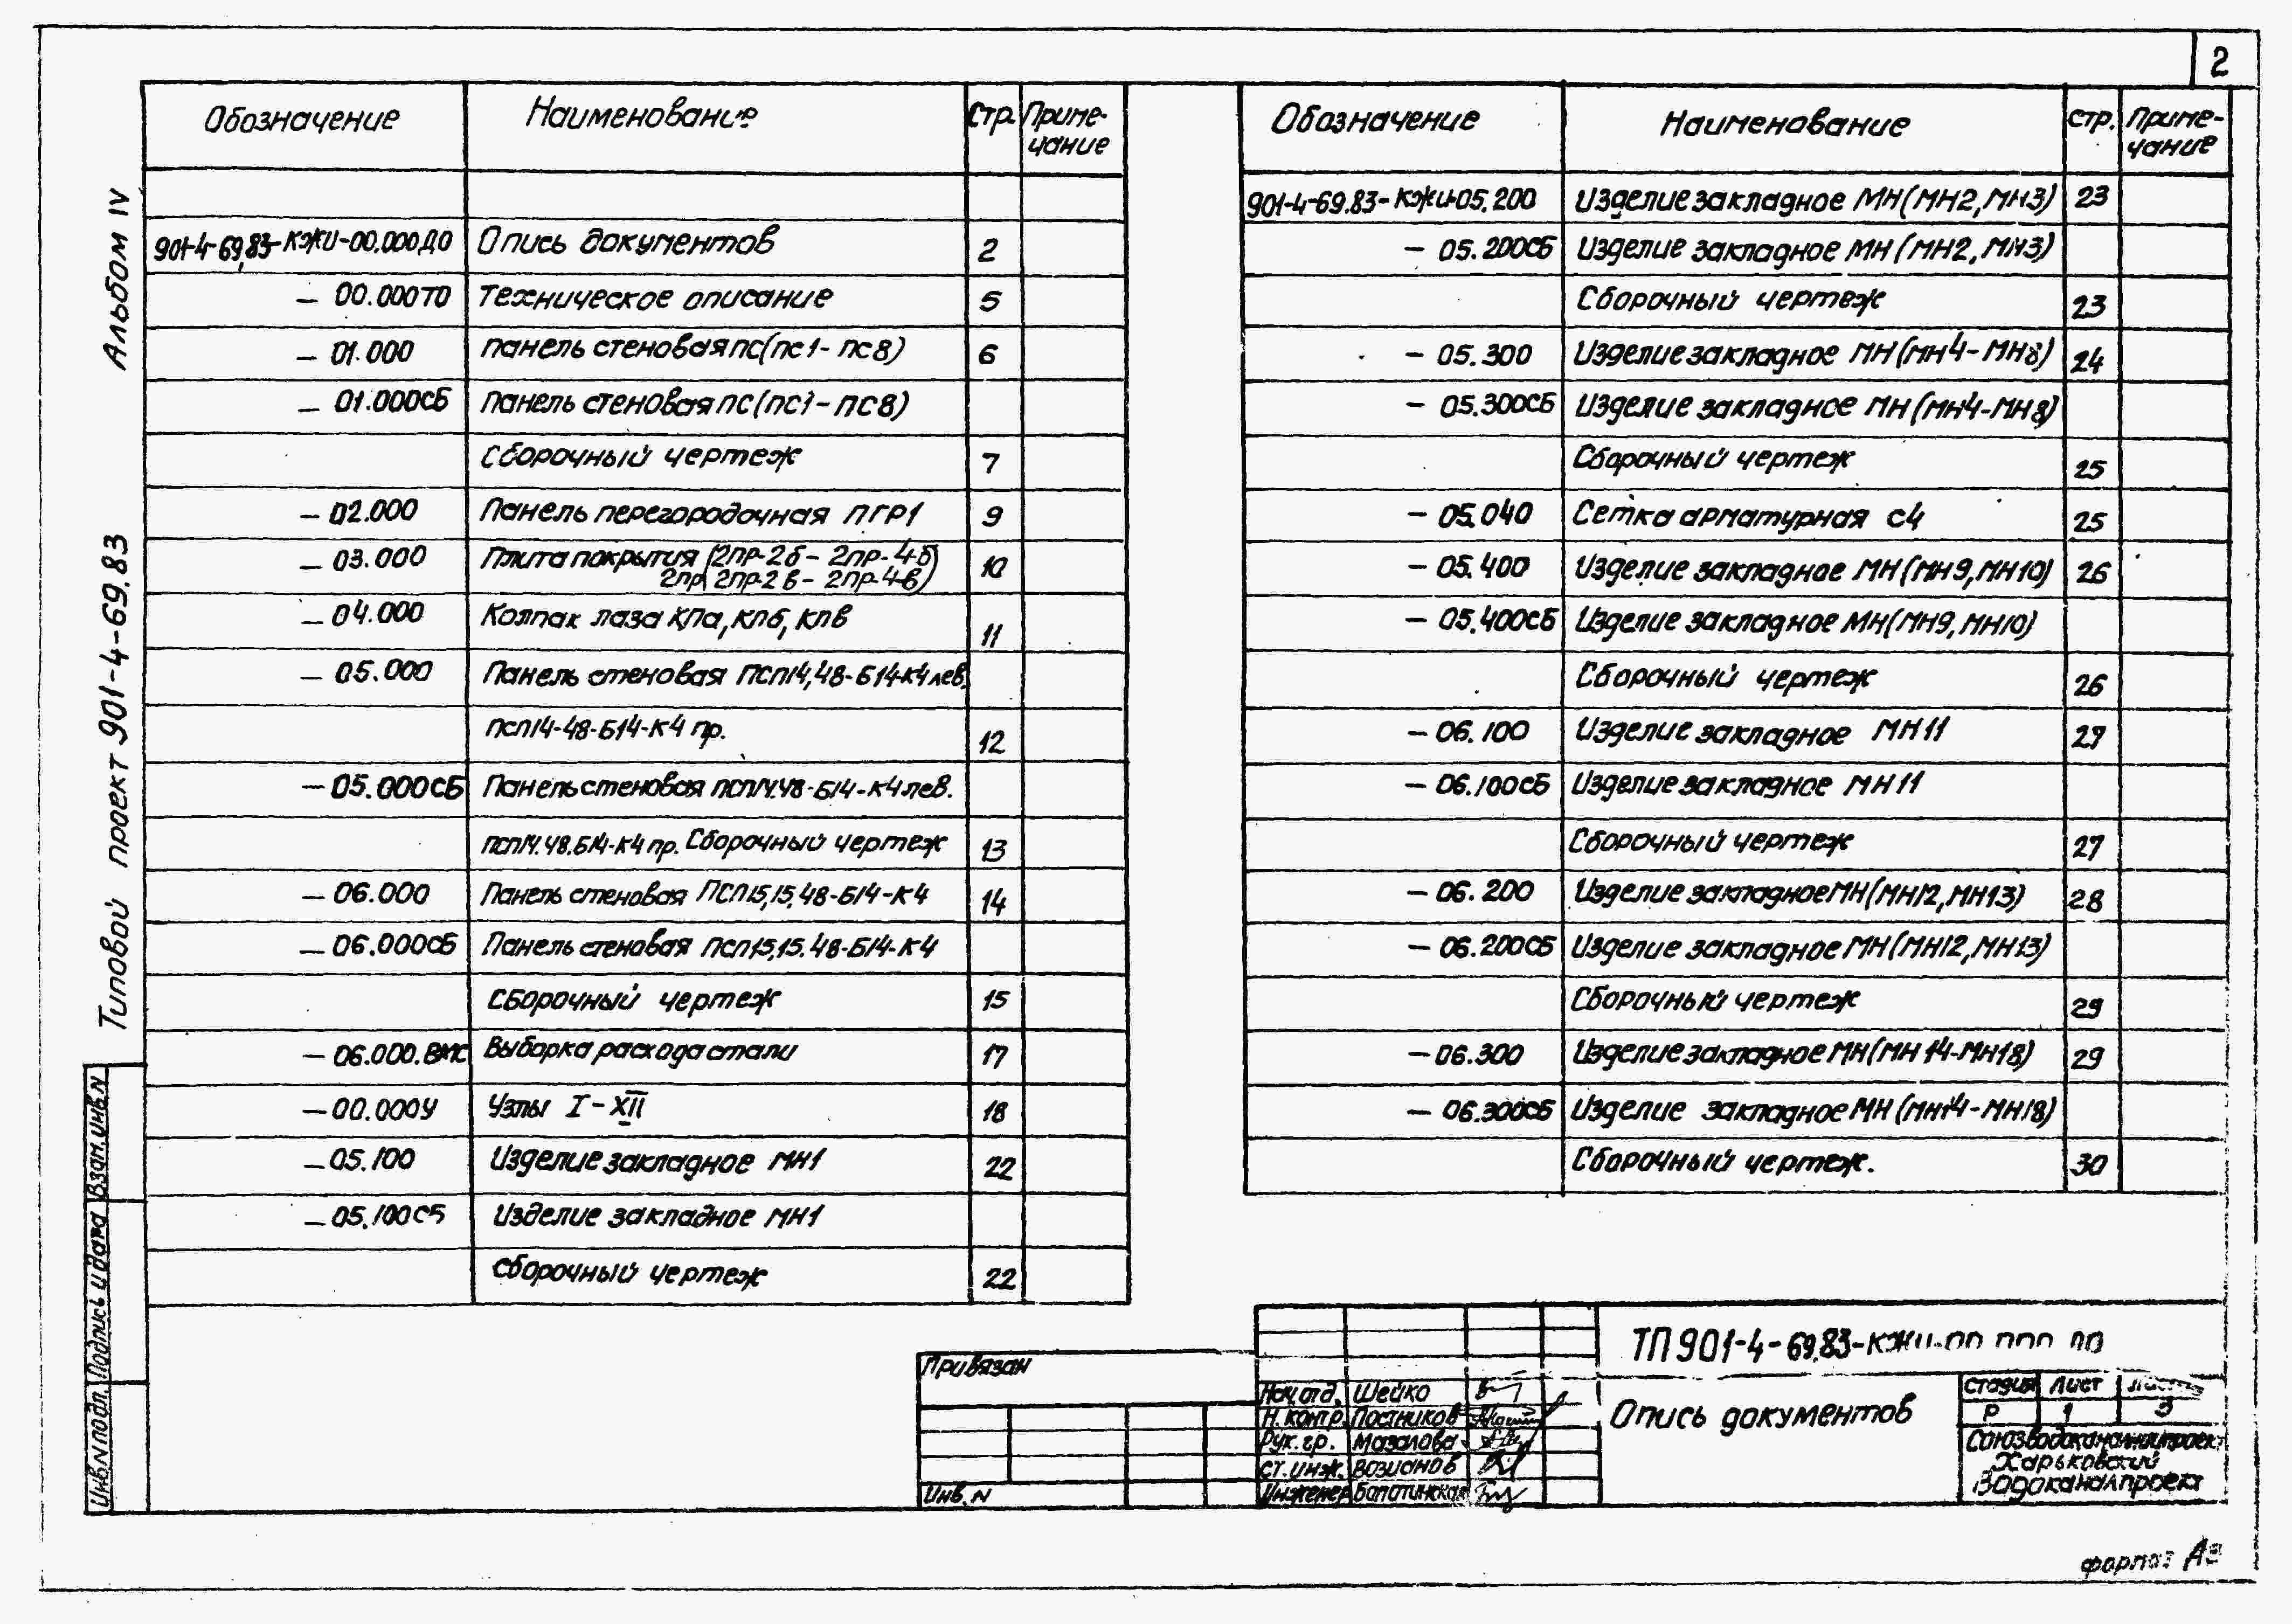 2
Альбом IV
Типовой проект 901-4-69.83
Обозначение Наименование Стр. Приме-
чание
901-4-69.83-КЖИ-00.000ДО Опись документов 2
— 00.000ТО Техническое описание 5
— 01.000 Панель стеновая ПС(ПС1- ПС8) 6
— 01.000СБ Панель стеновая ПС(ПС1- ПС8)
Сборочный чертеж 7
— 02.000 Панель перегородочная ПГР1 9
— 03.000 Плита покрытия (2ПР-2б - 2ПР-4-б 10
2ПР 2ПР-2в - 2ПР-4-в)
— 04.000 Колпак лаза КПа, КПб, КПв 11
— 05.000 Панель стеновая ПСП14,48-Б14-К4 лев.
ПСП14-48-Б14-К4 пр. 12
— 05.000СБ Панель стеновая ПСП14.48-Б14-К4 лев.
ПСП14.48.Б14-К4 пр. Сборочный чертеж 13
— 06.000 Панель стеновая ПСП15,15,48-Б14-К4 14
— 06.000СБ Панель стеновая ПСП15,15.48-Б14-К4
Сборочный чертеж 15
— 06.000.ВМС Выборка расхода стали 17
— 00.000У Узлы I-XII 18
— 05.100 Изделие закладное МН1 22
— 05.100СБ Изделие закладное МН1
Сборочный чертеж 22
Обозначение Наименование Стр. Приме-
чание
901-4-69.83-КЖИ-05.200 Изделие закладное МН(МН2,МН3) 23
— 05.200СБ Изделие закладное МН(МН2,МН3)
Сборочный чертеж 23
— 05.300 Изделие закладное МН(МН4-МН8) 24
— 05.300СБ Изделие закладное МН(МН4-МН8)
Сборочный чертеж 25
— 05.040 Сетка арматурная С4 25
— 05.400 Изделие закладное МН(МН9,МН10) 26
— 05.400СБ Изделие закладное МН(МН9,МН10)
Сборочный чертеж 26
— 06.100 Изделие закладное МН11 27
— 06.100СБ Изделие закладное МН11
Сборочный чертеж 27
— 06.200 Изделие закладное МН(МН12,МН13) 28
— 06.200СБ Изделие закладное МН(МН12,МН13)
Сборочный чертеж 29
— 06.300 Изделие закладное МН(МН14-МН18) 29
— 06.300СБ Изделие закладное МН(МН14-МН18)
Сборочный чертеж. 30
Инв.N подл. Подпись и дата Взам.инв.N
Привязан
Инв. N
ТП 901-4-69.83-КЖИ-
Нач.отд. Шейко
Н.контр. Постников
Рук.гр. Мазалова
ст.инж. Возианов
Инженер
Опись документов
Стадия Лист
Р 1 3
Союзводоканалниипроект
Харьковский
Водоканалпроект
формат А3